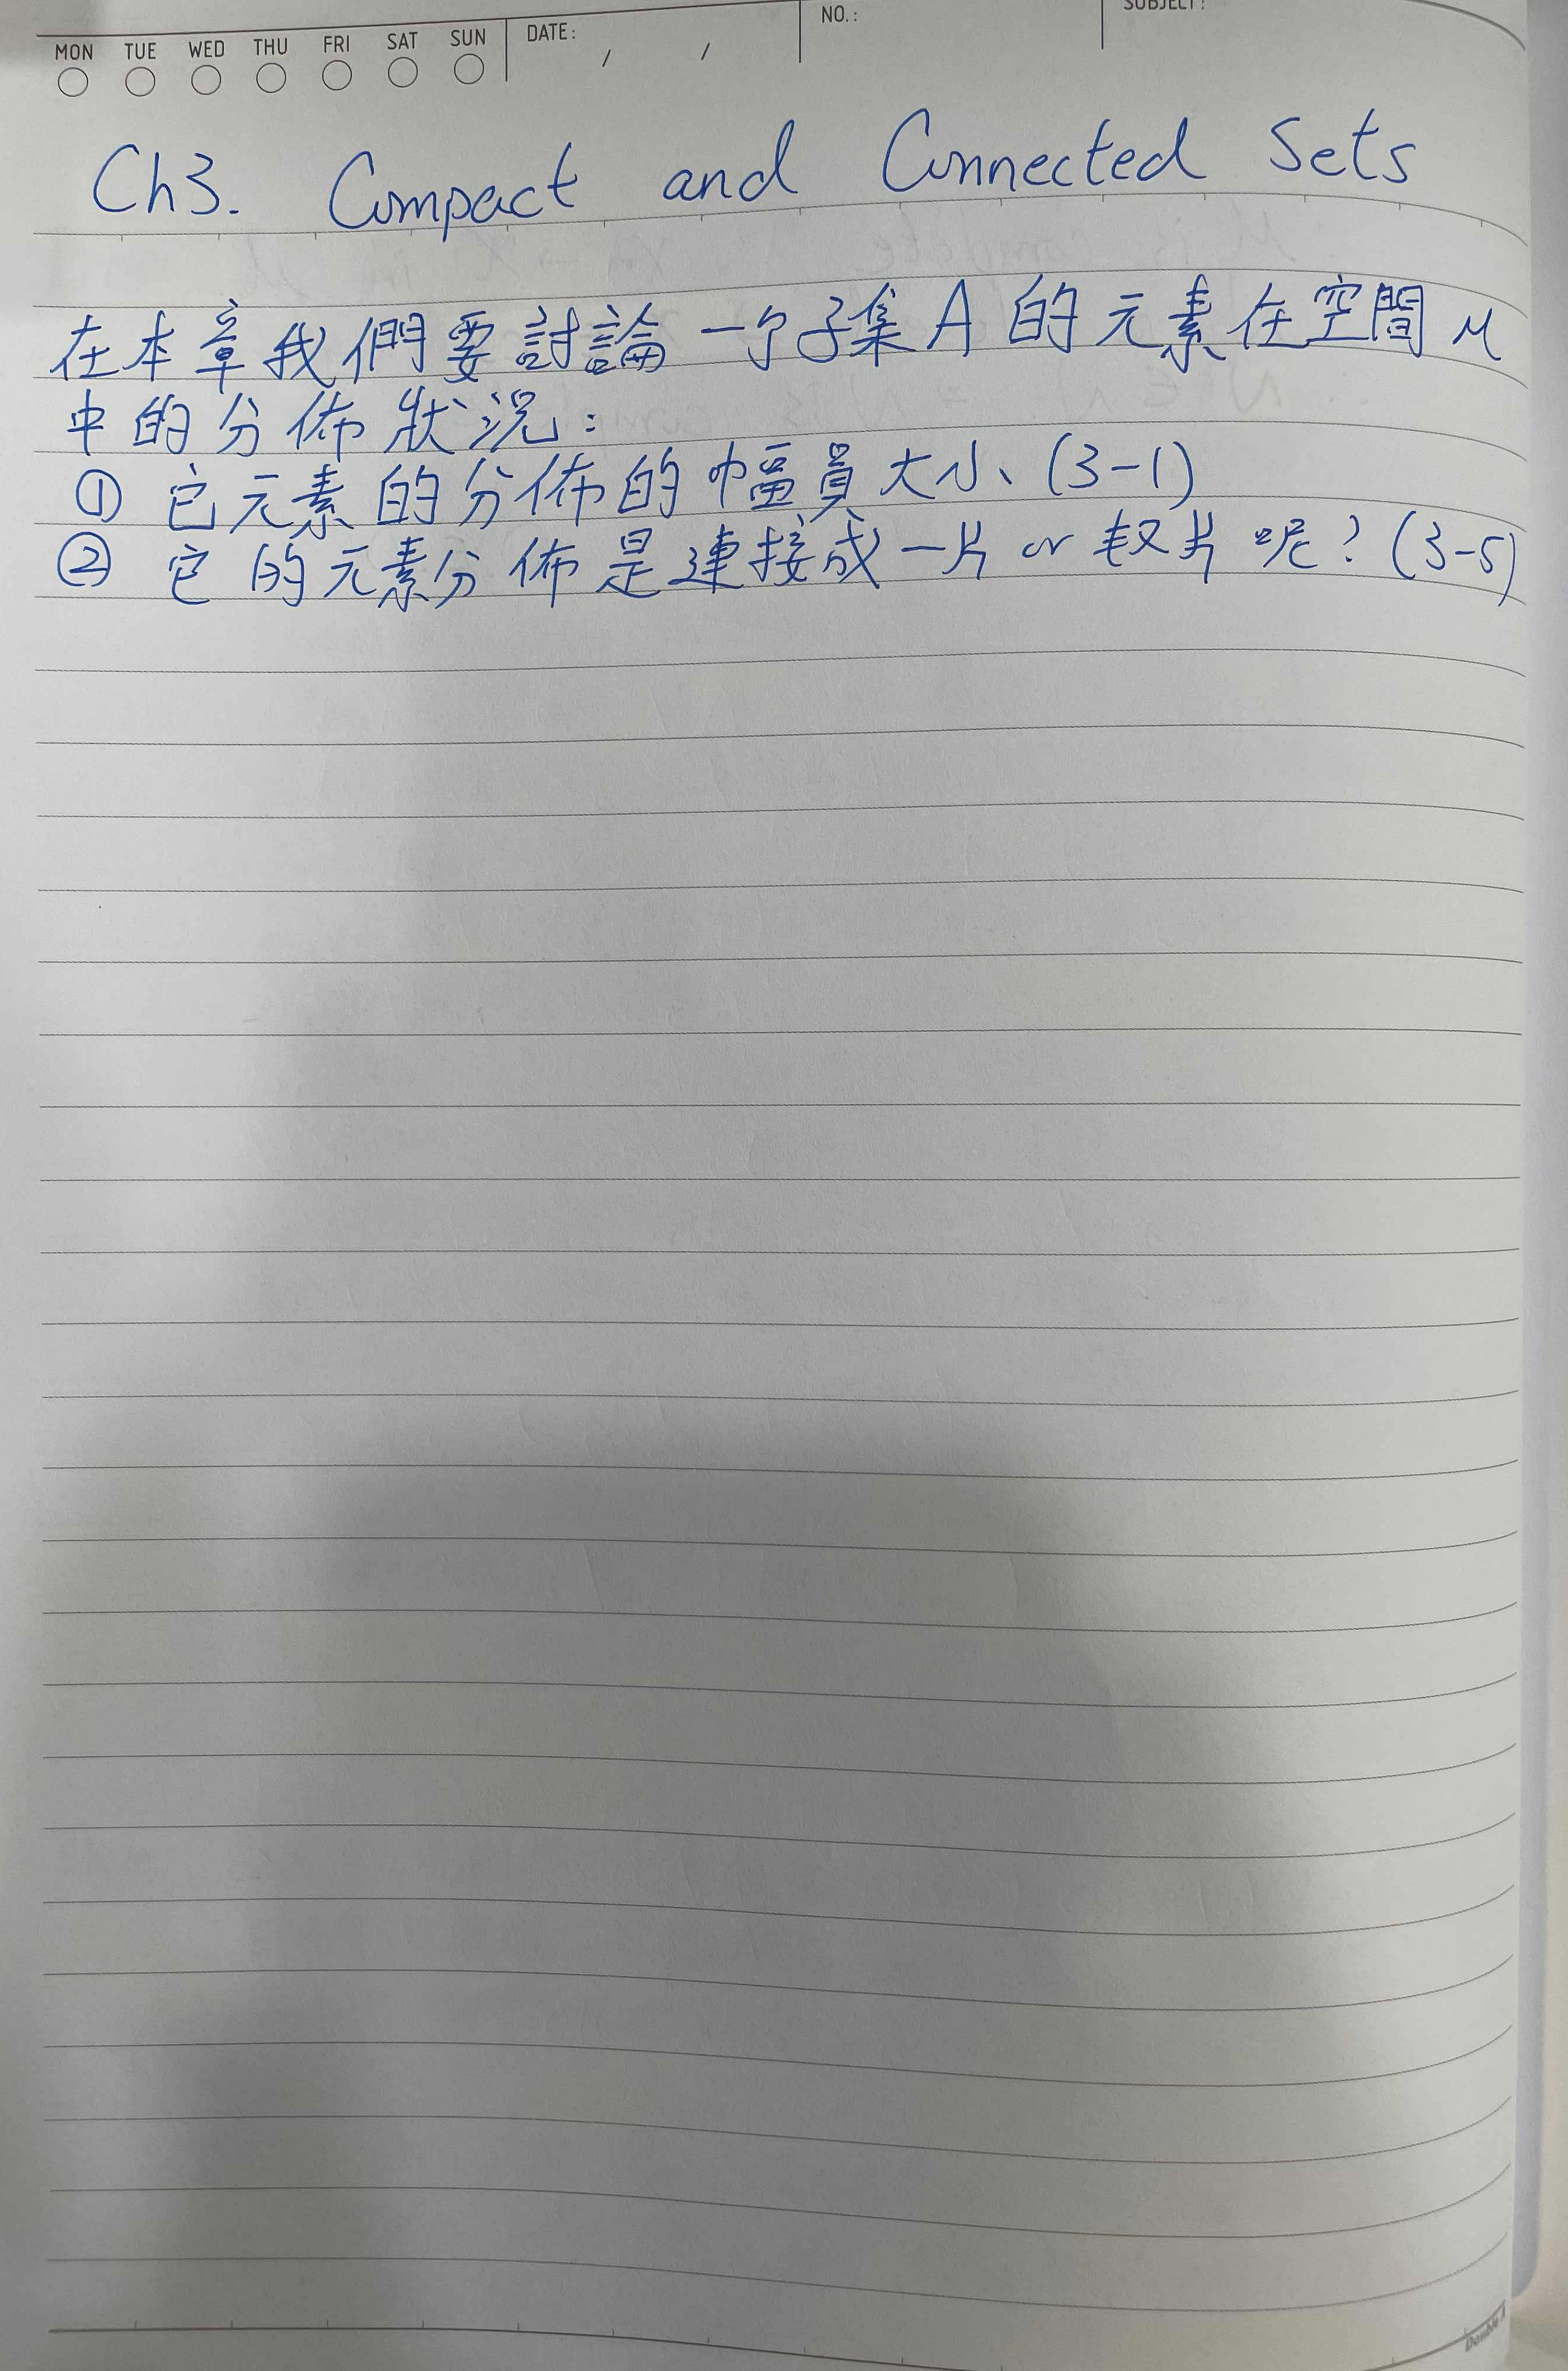 MON TUE WED THU FRI SAT SUN DATE: / / NO.: SUBJECT:
Ch3. Compact and Connected Sets
在本章我們要討論一个子集A的元素在空間M
中的分佈狀況:
① 它元素的分佈的幅員大小、(3-1)
② 它的元素分佈是連接成一片 or 片呢?(3-5)
Double A